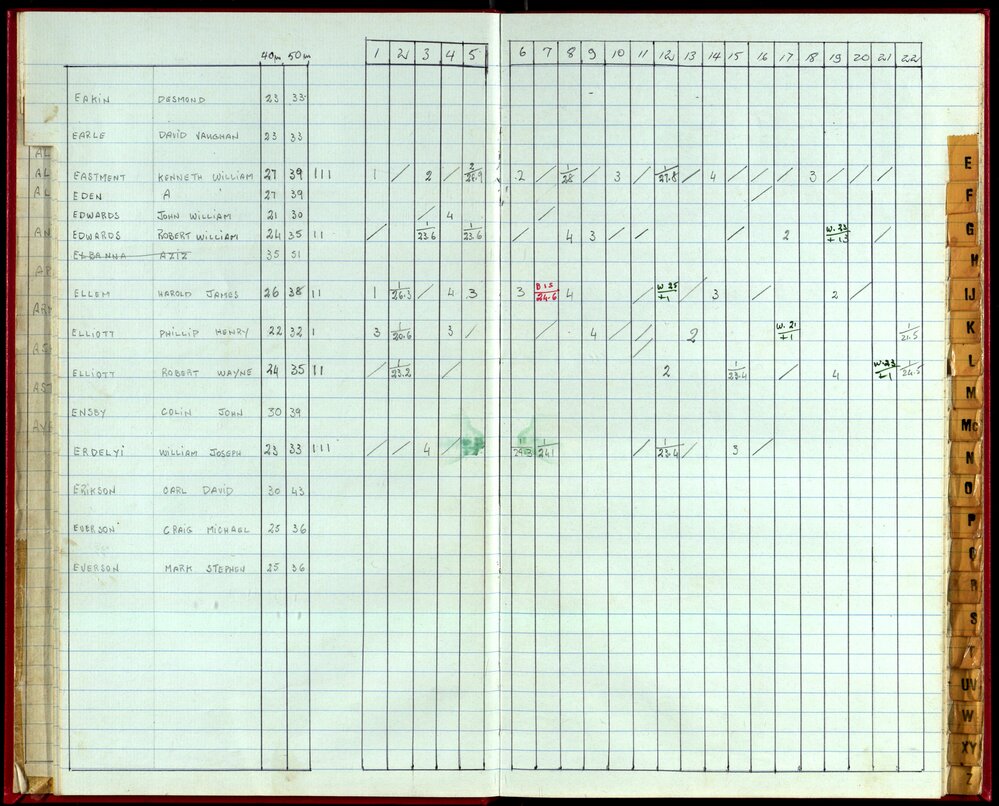 40m 50m 1 2 3 4 5 6 7 8 9 10 11 12 13 14 15 16 17 18 19 20 21 22
EAKIN DESMOND 23 33
EARLE DAVID VAUGHAN 23 33
EASTMENT KENNETH WILLIAM 27 39 111 1 / 2 / 2/26.9 2 / 1/28 / 3 / 1/27.8 / 4 / / / 3 / / /
EDEN A 27 39 /
EDWARDS JOHN WILLIAM 21 30 / 4 /
EDWARDS ROBERT WILLIAM 24 35 11 / 1/23.6 1/23.6 / 4 3 / / / 2 W.23/+1.3 /
ELBANNA AZIZ 35 51
ELLEM HAROLD JAMES 26 38 11 1 1/26.3 / 4 3 3 DIS/24.6 4 / W 25/+1 / 3 / 2 /
ELLIOTT PHILLIP HENRY 22 32 1 3 1/20.6 3 / / 4 / / / 2 W.21/+1 1/21.5
ELLIOTT ROBERT WAYNE 24 35 11 / 1/23.2 / 2 1/23.4 / 4 W.23/+1 1/24.5
ENSBY COLIN JOHN 30 39
ERDELYI WILLIAM JOSEPH 23 33 111 / / 4 / 1/24.3 1/241 / 1/23.4 / 3 /
ERIKSON CARL DAVID 30 43
EVERSON CRAIG MICHAEL 25 36
EVERSON MARK STEPHEN 25 36
AL
AL
AL
AN
AP
AS
AST
E
F
G
H
IJ
K
L
M
Mc
N
O
P
Q
R
S
T
UV
W
XY
Z